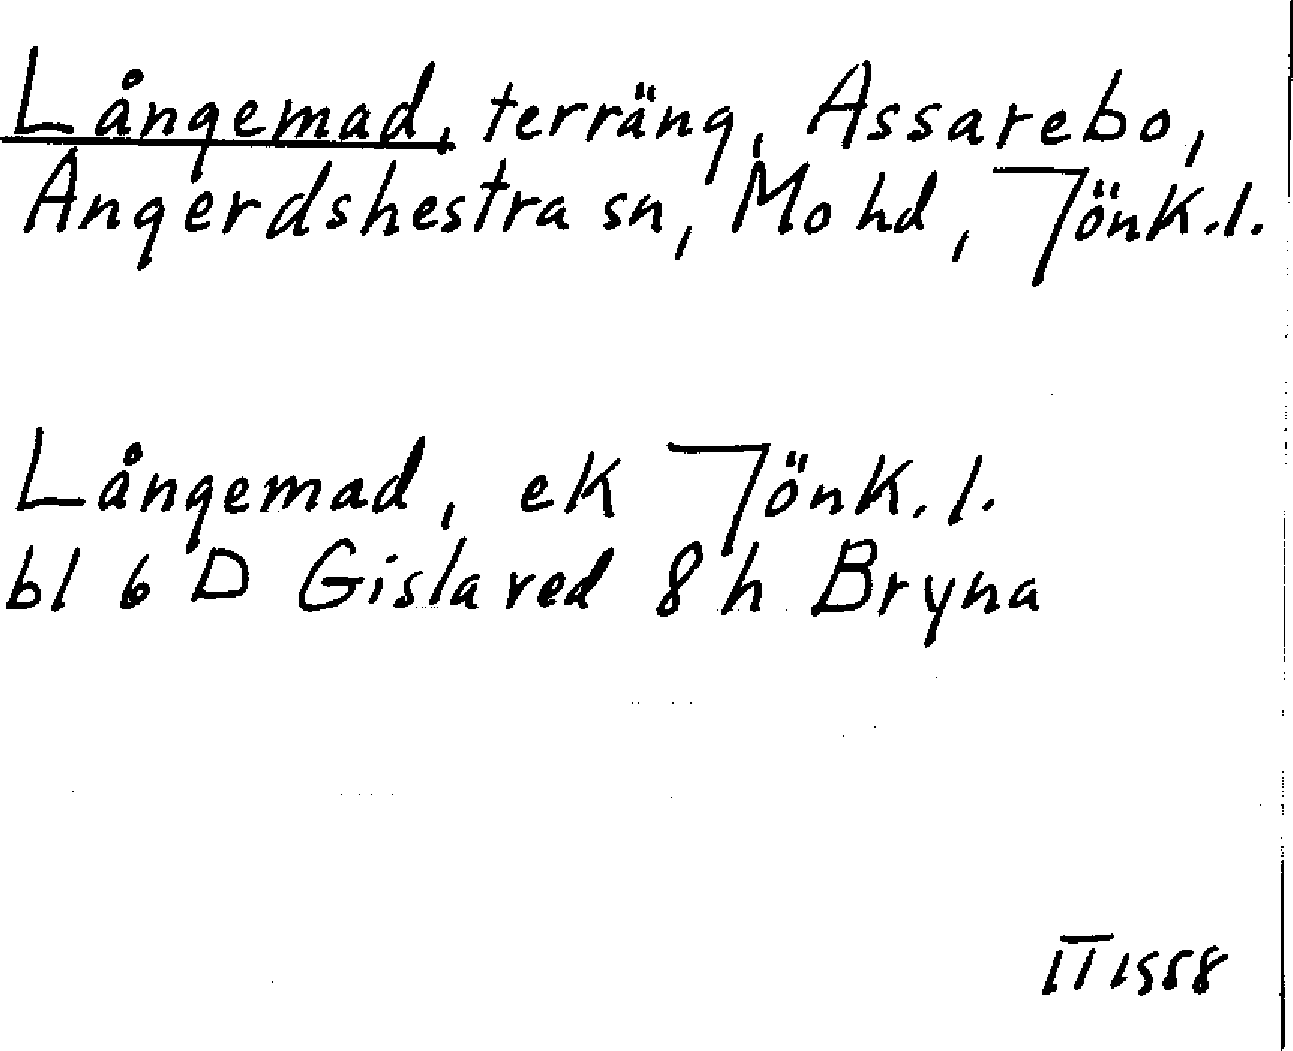 Långemad, terräng, Assarebo,
Angerdshestra sn, Mo hd, Jönk.l.
Långemad, ek Jönk.l.
bl 6 D Gislaved 8 h Bryna